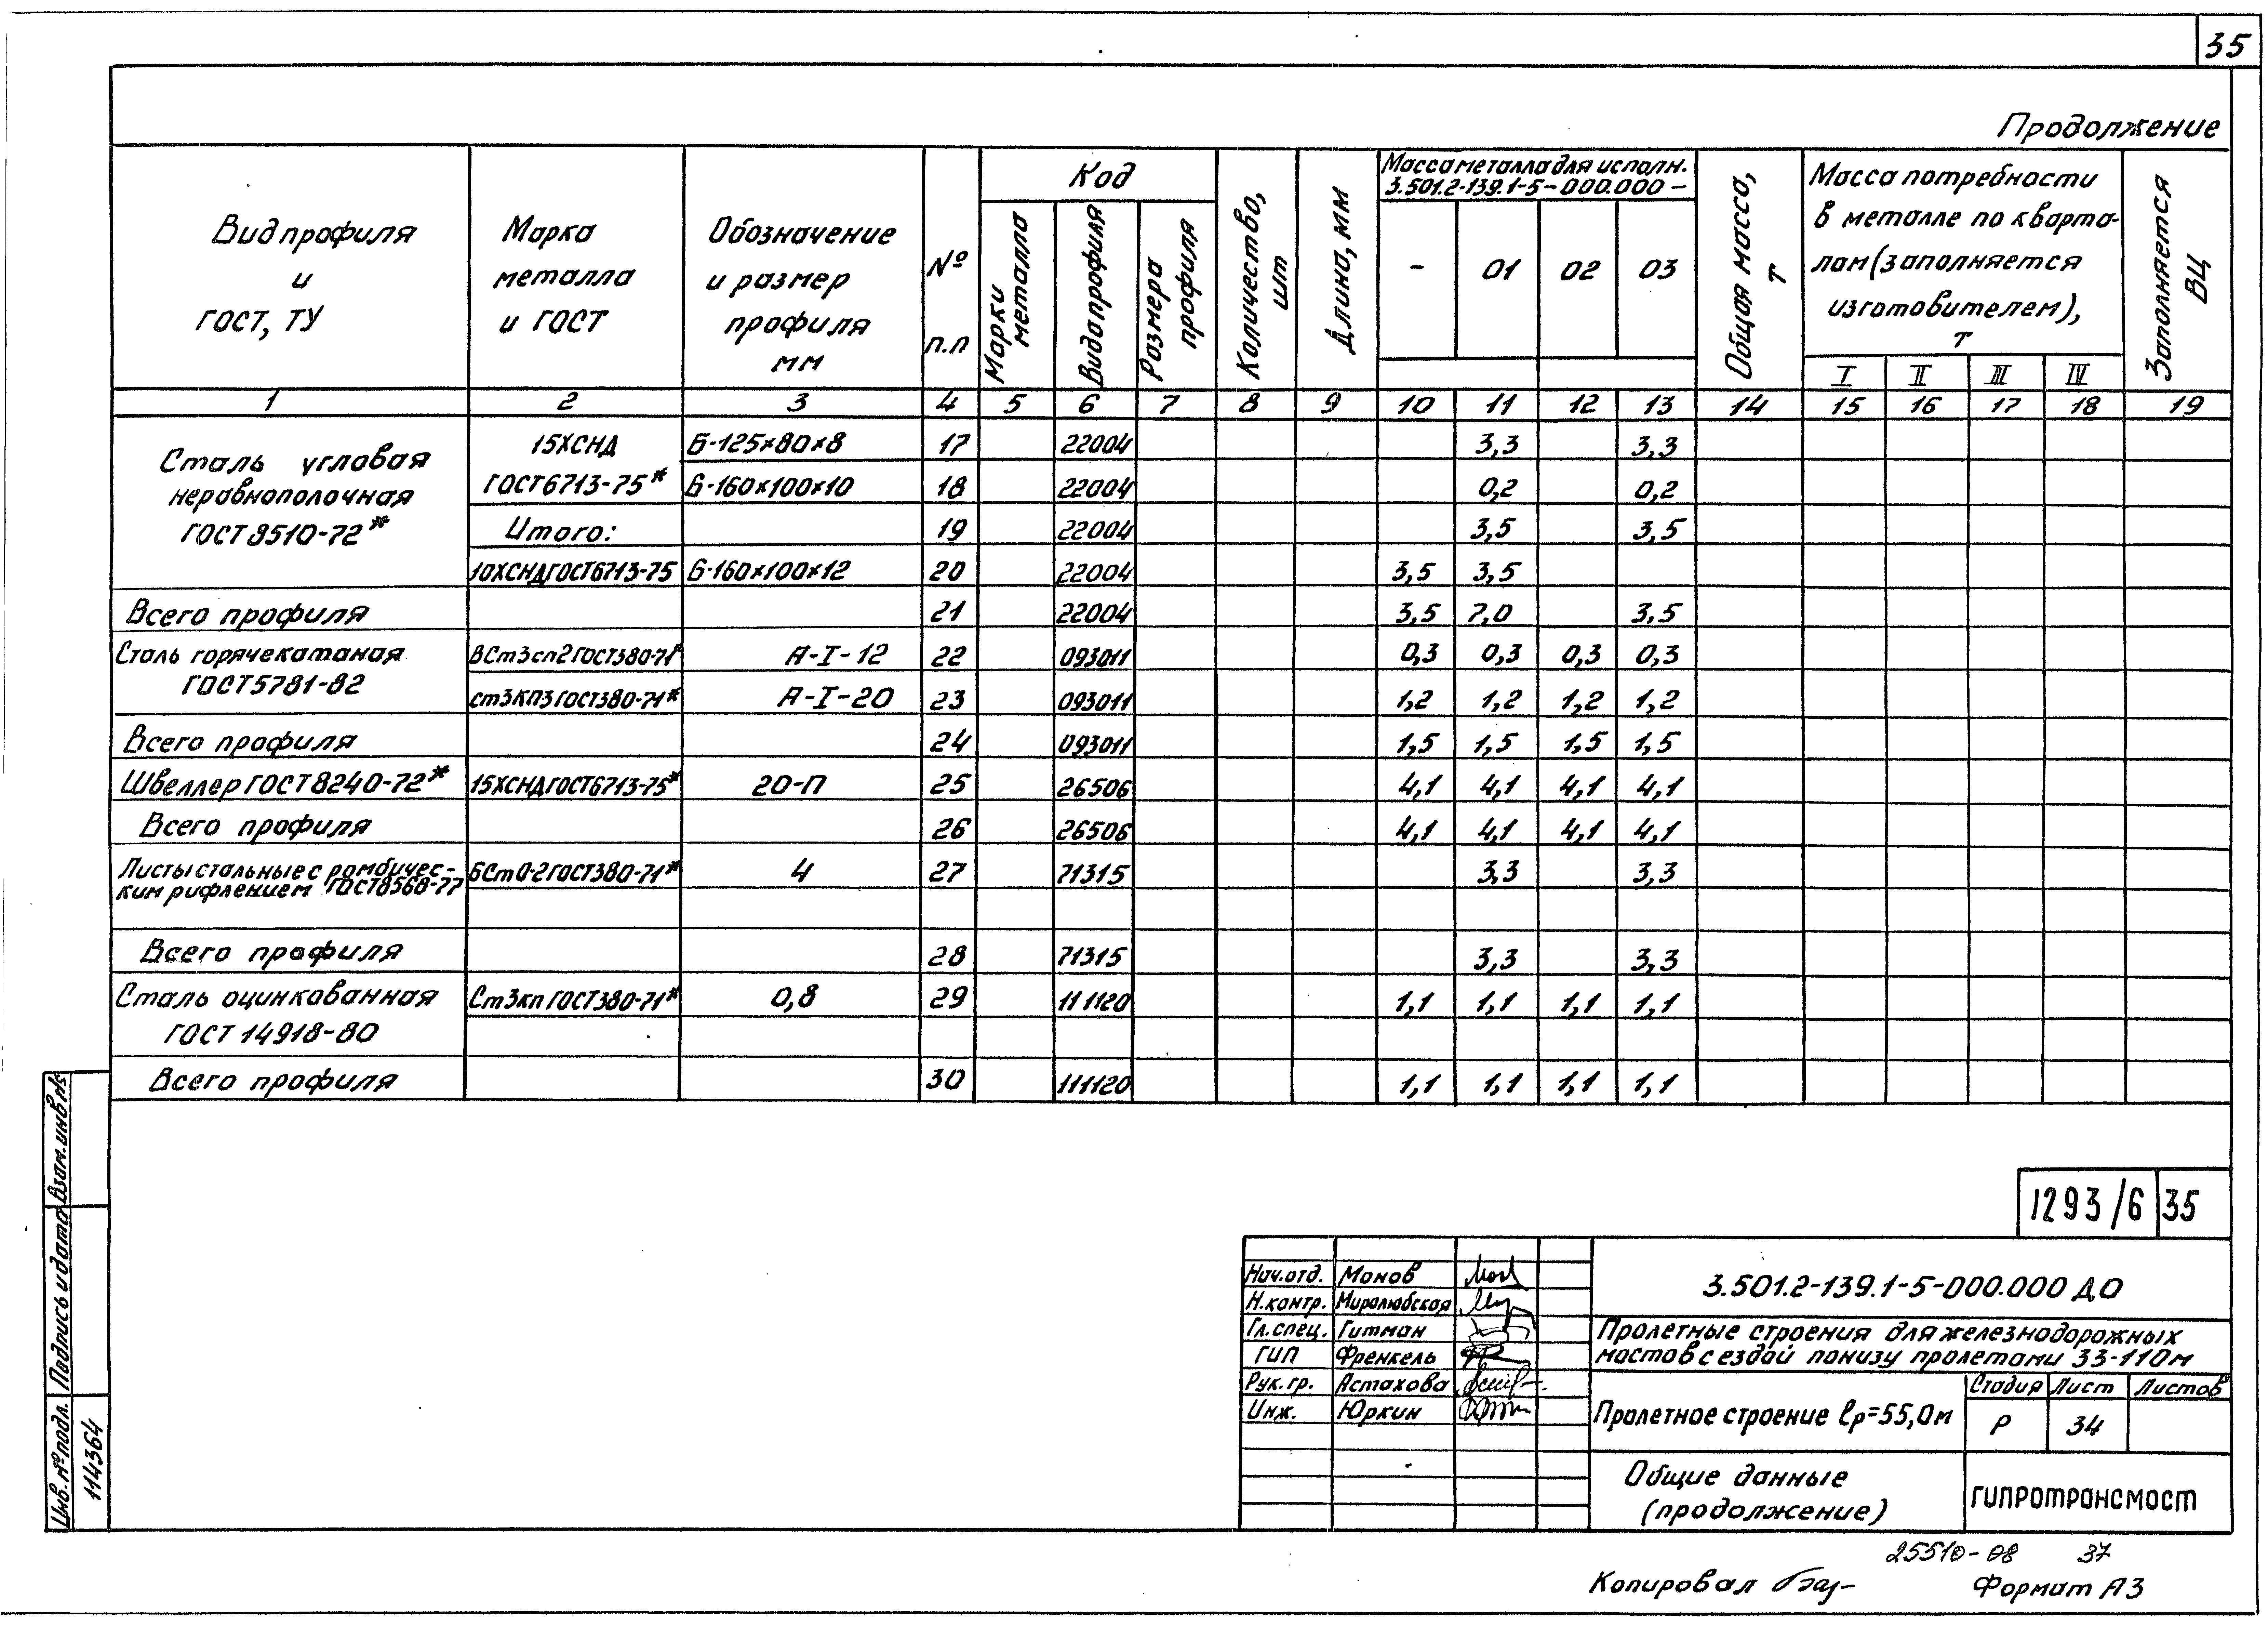 35
Продолжение
Вид профиля и ГОСТ, ТУ
Марка металла и ГОСТ
Обозначение и размер профиля мм
№ п.п
Код
Марки металла
Вида профиля
Размера профиля
Количество, шт
Длина, мм
Масса металла для исполн. 3.501.2-139.1-5-000.000 –
– 01 02 03
Общая масса, т
Масса потребности в металле по кварталам (заполняется изготовителем), т
I II III IV
Заполняется ВЦ
1 2 3 4 5 6 7 8 9 10 11 12 13 14 15 16 17 18 19
Сталь угловая неравнополочная ГОСТ 8510-72*
15ХСНД Б-125×80×8 17 22004 3,3 3,3
ГОСТ 6713-75* Б-160×100×10 18 22004 0,2 0,2
Итого: 19 22004 3,5 3,5
10ХСНД ГОСТ 6713-75 Б-160×100×12 20 22004 3,5 3,5
Всего профиля 21 22004 3,5 7,0 3,5
Сталь горячекатаная ГОСТ 5781-82
ВСт3сп2 ГОСТ 380-71* А-I-12 22 093011 0,3 0,3 0,3 0,3
Ст3КП3 ГОСТ 380-71* А-I-20 23 093011 1,2 1,2 1,2 1,2
Всего профиля 24 093011 1,5 1,5 1,5 1,5
Швеллер ГОСТ 8240-72* 15ХСНД ГОСТ 6713-75* 20-П 25 26506 4,1 4,1 4,1 4,1
Всего профиля 26 26506 4,1 4,1 4,1 4,1
Листы стальные с ромбичес-
ким рифлением ГОСТ 8568-77 БСт0-2 ГОСТ 380-71* 4 27 71315 3,3 3,3
Всего профиля 28 71315 3,3 3,3
Сталь оцинкованная ГОСТ 14918-80
Ст3кп ГОСТ 380-71* 0,8 29 111120 1,1 1,1 1,1 1,1
Всего профиля 30 111120 1,1 1,1 1,1 1,1
Взам. инв. №
Подпись и дата
Инв. № подл.
114364
1293/6 35
Нач. отд. Монов
Н. контр. Миролюбская
Гл. спец. Гитман
ГИП Френкель
Рук. гр. Астахова
Инж. Юркин
3.501.2-139.1-5-000.000 ДО
Пролетные строения для железнодорожных
мостов с ездой понизу пролетами 33-110м
Пролетное строение lр=55,0м
Стадия Лист Листов
Р 34
Общие данные
(продолжение)
ГИПРОТРАНСМОСТ
25510-08 37
Копировал
Формат А3